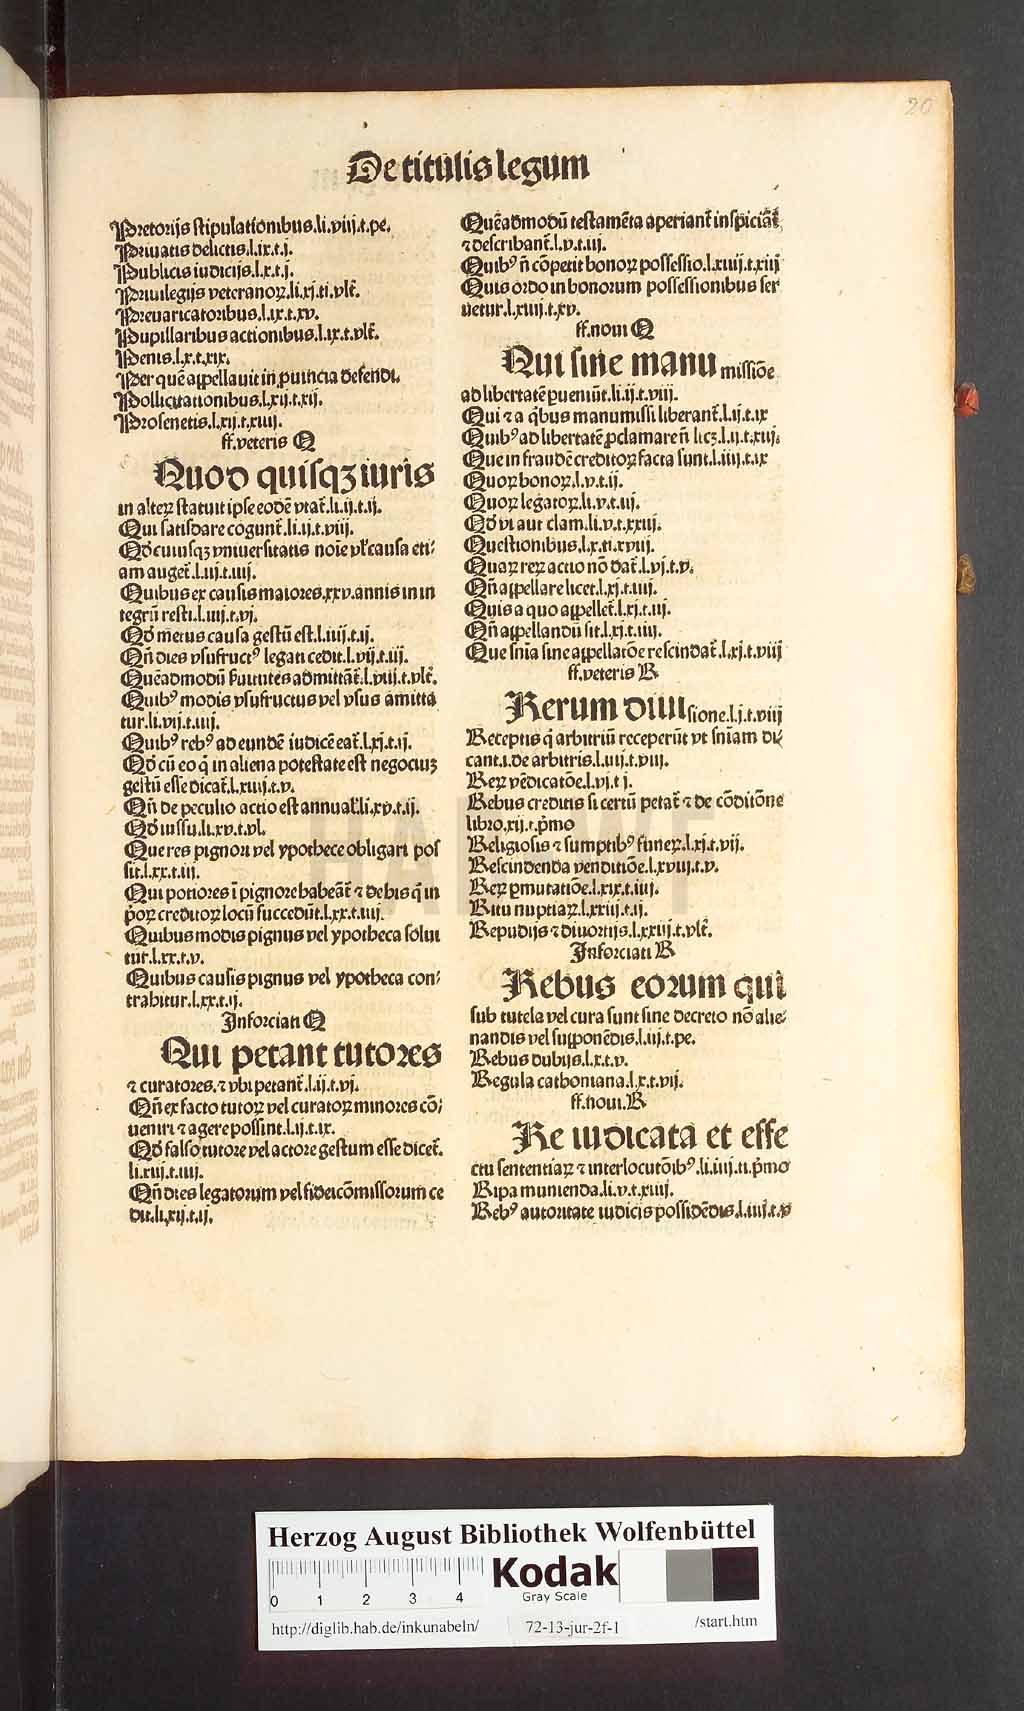 20
De titulis legum
Pretorijs stipulationibus.li.viij.t.pe.
Priuatis delictis.l.ix.t.j.
Publicis iudicijs.l.x.t.j.
Priuilegijs veteranoꝝ.li.xj.ti.vlt̄.
Preuaricatoribus.l.ix.t.xv.
Pupillaribus actionibus.l.ix.t.vlt̄.
Penis.l.x.t.xix.
Per quē appellauit in ꝓuincia defendi.
Pollicitationibus.l.xij.t.xij.
Prosenetis.l.xij.t.xiiij.
ff.veteris Q
Quod quisqꝫ iuris
in alteꝝ statuit ipse eodē vtat̄.li.ij.t.ij.
Qui satisdare cogunt̄.li.ij.t.viij.
Qd̄ cuiusqꝫ vniuersitatis noīe vl̓ causa eti⸗
am auget̄.l.iij.t.iiij.
Quibus ex causis maiores.xxv.annis in in
tegrū resti.l.iiij.t.vj.
Qd̄ metus causa gestū est.l.iiij.t.ij.
Qn̄ dies vsufructꝰ legati cedit.l.vij.t.iij.
Quēadmodū ẜuitutes admittāt̄.l.viij.t.vlt̄.
Quibꝰ modis vsufructus vel vsus amitta
tur.li.vij.t.iiij.
Quibꝰ rebꝰ ad eundē iudicē eat̄.l.xj.t.ij.
Qd̄ cū eo q̇ in aliena potestate est negociuꝫ
gestū esse dicat̄.l.xiiij.t.v.
Qn̄ de peculio actio est annual̓.li.xv.t.ij.
Qd̄ iussu.li.xv.t.vl.
Que res pignori vel ypothece obligari pos
sit.l.xx.t.iij.
Qui potiores ī pignore habeāt̄ ⁊ de his q̇ in
p̓oꝝ creditoꝝ locū succedūt.l.xx.t.iiij.
Quibus modis pignus vel ypotheca solui
tur.l.xx.t.v.
Quibus causis pignus vel ypotheca con⸗
trahitur.l.xx.t.ij.
Inforciati Q
Qui petant tutores
⁊ curatores.⁊ vbi petant̄.l.ij.t.vj.
Qn̄ ex facto tutoꝝ vel curatoꝝ minores cō⸗
ueniri ⁊ agere possint.l.ij.t.ix.
Qd̄ falso tutore vel actore gestum esse dicet̄.
li.xij.t.iiij.
Qn̄ dies legatorum vel fideicōmissorum ce
dit.li.xij.t.ij.
Quēadmodū testamēta aperiant̄ inspiciāt̄
⁊ describant̄.l.v.t.iij.
Quibꝰ n̄ cōpetit bonoꝝ possessio.l.xiiij.t.xiij
Quis ordo in bonorum possessionibus ser
uetur.l.xiij.t.xv.
ff.noui Q
Qui sine manumissiōe
ad libertatē ꝓueniūt.li.ij.t.viij.
Qui ⁊ a q̇bus manumissi liberant̄.l.ij.t.ix
Quibꝰ ad libertatē ꝓclamare n̄ licꝫ.l.ij.t.xij.
Que in fraudē creditoꝝ facta sunt.l.iiij.t.ix
Quoꝝ bonoꝝ.l.v.t.ij.
Quoꝝ legatoꝝ.li.v.t.iij.
Qd̄ vi aut clam.li.v.t.xxiij.
Questionibus.l.x.ti.xviij.
Quaꝝ reꝝ actio nō dat̄.l.vj.t.v.
Qn̄ appellare licet.l.xj.t.iiij.
Quis a quo appellet̄.l.xj.t.iij.
Qn̄ appellandū sit.l.xj.t.iiij.
Que sn̄ia sine appellatōe rescindat̄.l.xj.t.viij
ff.veteris R
Rerum diuisione.l.j.t.viij
Receptis q̇ arbitriū receperūt vt sn̄iam di⸗
cant.i.de arbitris.l.iiij.t.viij.
Reꝝ vēdicatōe.l.vj.t j.
Rebus creditis si certū petat̄ ⁊ de cōditōne
libro.xij.t.p̓mo
Religiosis ⁊ sumptibꝰ funeꝝ.l.xj.t.vij.
Rescindenda venditiōe.l.xviij.t.v.
Reꝝ ꝑmutatiōe.l.xix.t.iiij.
Ritu nuptiaꝝ.l.xxiij.t.ij.
Repudijs ⁊ diuortijs.l.xxiij.t.vlt̄.
Inforciati R
Rebus eorum qui
sub tutela vel cura sunt sine decreto nō alie⸗
nandis vel supponēdis.l.iij.t.pe.
Rebus dubijs.l.x.t.v.
Regula cathoniana.l.x.t.vij.
ff.noui.R
Re iudicata et effe
ctu sententiaꝝ ⁊ interlocutōibꝰ.li.iiij.ti.p̓mo
Ripa munienda.li.v.t.xiiij.
Rebꝰ autoritate iudicis possidēdis.l.iiij.t.v
Herzog August Bibliothek Wolfenbüttel
0 1 2 3 4
Kodak
Gray Scale
http://diglib.hab.de/inkunabeln/ 72-13-jur-2f-1 /start.htm